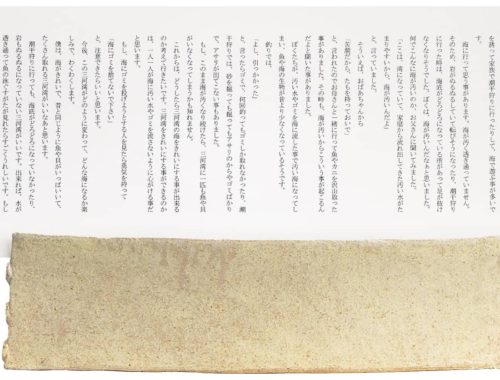 を誘って家族で潮干狩りに行ったりして、海で遊ぶ事が多いで
す。
海に行って思う事があります。海が汚く透き通っていません。
そのため、岩がぬるぬるしていて転びそうになったり、潮干狩り
に行った時は、海底がどろどろになっている所があって足が抜け
なくなりそうでした。ぼくは、海が汚いんだなあと思いました。
何でこんなに海が汚いのか、お父さんに聞いてみました。
「ここは、湾になっていて、家庭から流れ出してきた汚い水がた
まりやすいから、海が汚いんだよ」
と、言っていました。
そういえば、おばあちゃんから
「苦潮だから、たもを持っておいで」
と、言われたのでお母さんと一緒に行って魚やカニを沢山取った
事がありました。その時も、海が汚いからこういう事が起こるん
だよと聞いた事があります。
ぼくたちが、汚い水やゴミを海に流した事で汚い海になってし
まい、魚や海の生物が昔より少なくなっているそうです。
釣りでは、
「よし、引っかかった」
と、言ったらゴミで、何回釣ってもゴミしか取れなかったり、潮
干狩りでは、砂を掘っても掘ってもアサリのからやゴミばかり
で、アサリが出てこない事もありました。
もし、このまま海が汚くなり続けたら、三河湾に一匹も魚や貝
がいなくなってしまうかも知れません。
これからは、どうしたら三河湾の海をきれいにする事が出来る
のか考えて行きたいです。三河湾をきれいにする事ができるの
は、一人一人が海に汚い水やゴミを流さないように心がける事だ
と思います。
もし、海にゴミを投げようとする人を見たら勇気を持って
「海にゴミを捨てないで下さい」
と、注意できたらなと思います。
今後、この三河湾がどのように変わって、どんな海になるか楽
しみで、わくわくします。
僕は、海がきれいで、昔と同じように魚や貝がいっぱいいて、
たくさん取れる三河湾がいいなあと思います。
潮干狩りに行っても、海底がどろどろになっていなかったり、
岩もぬるぬるになっていない三河湾がいいです。出来れば、水が
透き通って魚の泳ぐすがたが見れたらすごくうれしいです。もし